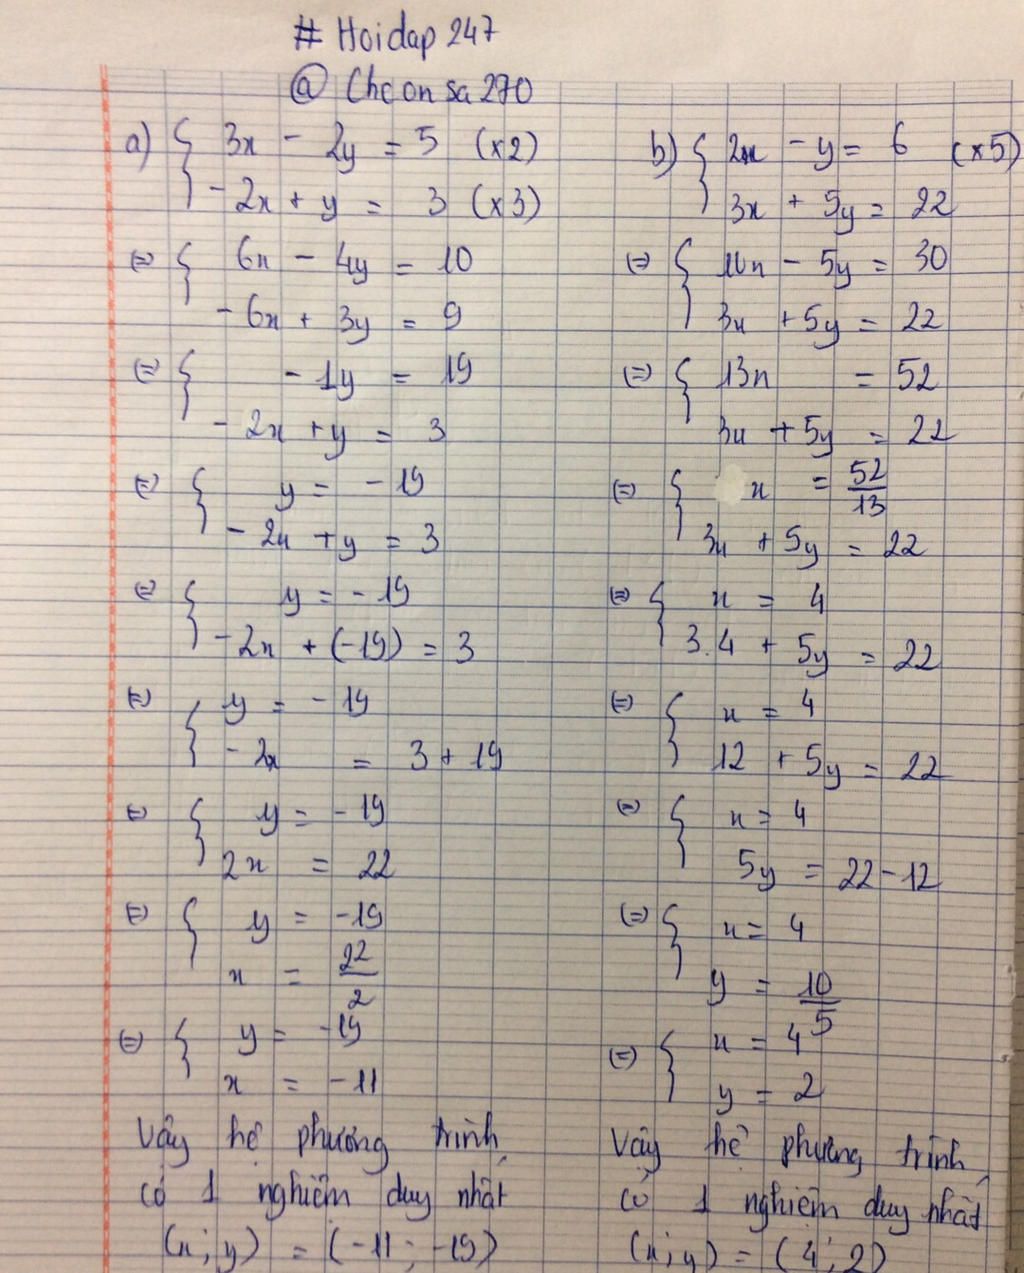 # Hoidap 247
@ Cheonsa270
a) { 3x - 2y = 5 (x2)
-2x + y = 3 (x3)
(=) { 6x - 4y = 10
-6x + 3y = 9
(=) { -1y = 19
-2x + y = 3
(=) { y = -19
-2x + y = 3
(=) { y = -19
-2x + (-19) = 3
(=) { y = -19
-2x = 3 + 19
(=) { y = -19
2x = 22
(=) { y = -19
x = 22/2
(=) { y = -19
x = -11
Vậy hệ phương trình
có 1 nghiệm duy nhất
(x; y) = (-11; -19)
b) { 2x - y = 6 (x5)
3x + 5y = 22
(=) { 10x - 5y = 30
3x + 5y = 22
(=) { 13x = 52
3x + 5y = 22
(=) { x = 52/13
3x + 5y = 22
(=) { x = 4
3.4 + 5y = 22
(=) { x = 4
12 + 5y = 22
(=) { x = 4
5y = 22 - 12
(=) { x = 4
y = 10/5
(=) { x = 4
y = 2
Vậy hệ phương trình
có 1 nghiệm duy nhất
(x; y) = (4; 2)